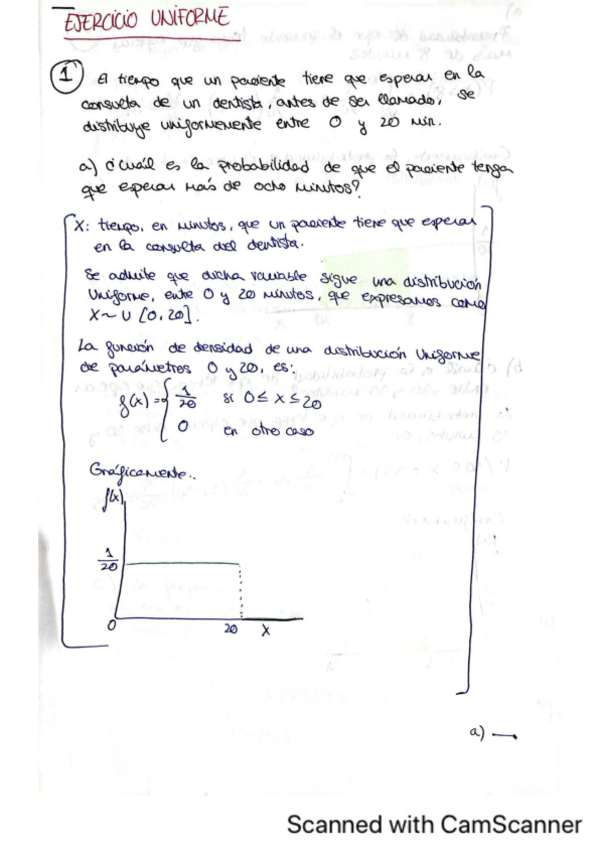 EJERCICIO UNIFORME
1 El tiempo que un paciente tiene que esperar en la
consulta de un dentista, antes de ser llamado, se
distribuye uniformemente entre 0 y 20 min.
a) ¿Cuál es la probabilidad de que el paciente tenga
que esperar más de ocho minutos?
X: tiempo, en minutos, que un paciente tiene que esperar
en la consulta del dentista.
Se admite que dicha variable sigue una distribución
Uniforme, entre 0 y 20 minutos, que expresamos como
X~U [0,20].
La función de densidad de una distribución Uniforme
de parámetros 0 y 20, es:
f(x) = { 1/20 si 0≤x≤20
0 en otro caso
Gráficamente..
f(x)
1/20
0 20 X
a) →
Scanned with CamScanner